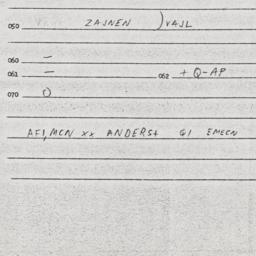 050 ZAJNEN ) VAJL
060 -
061 - 062 + Q-AP
070 O
AFI, MCN xx ANDERS+ GI EMECN